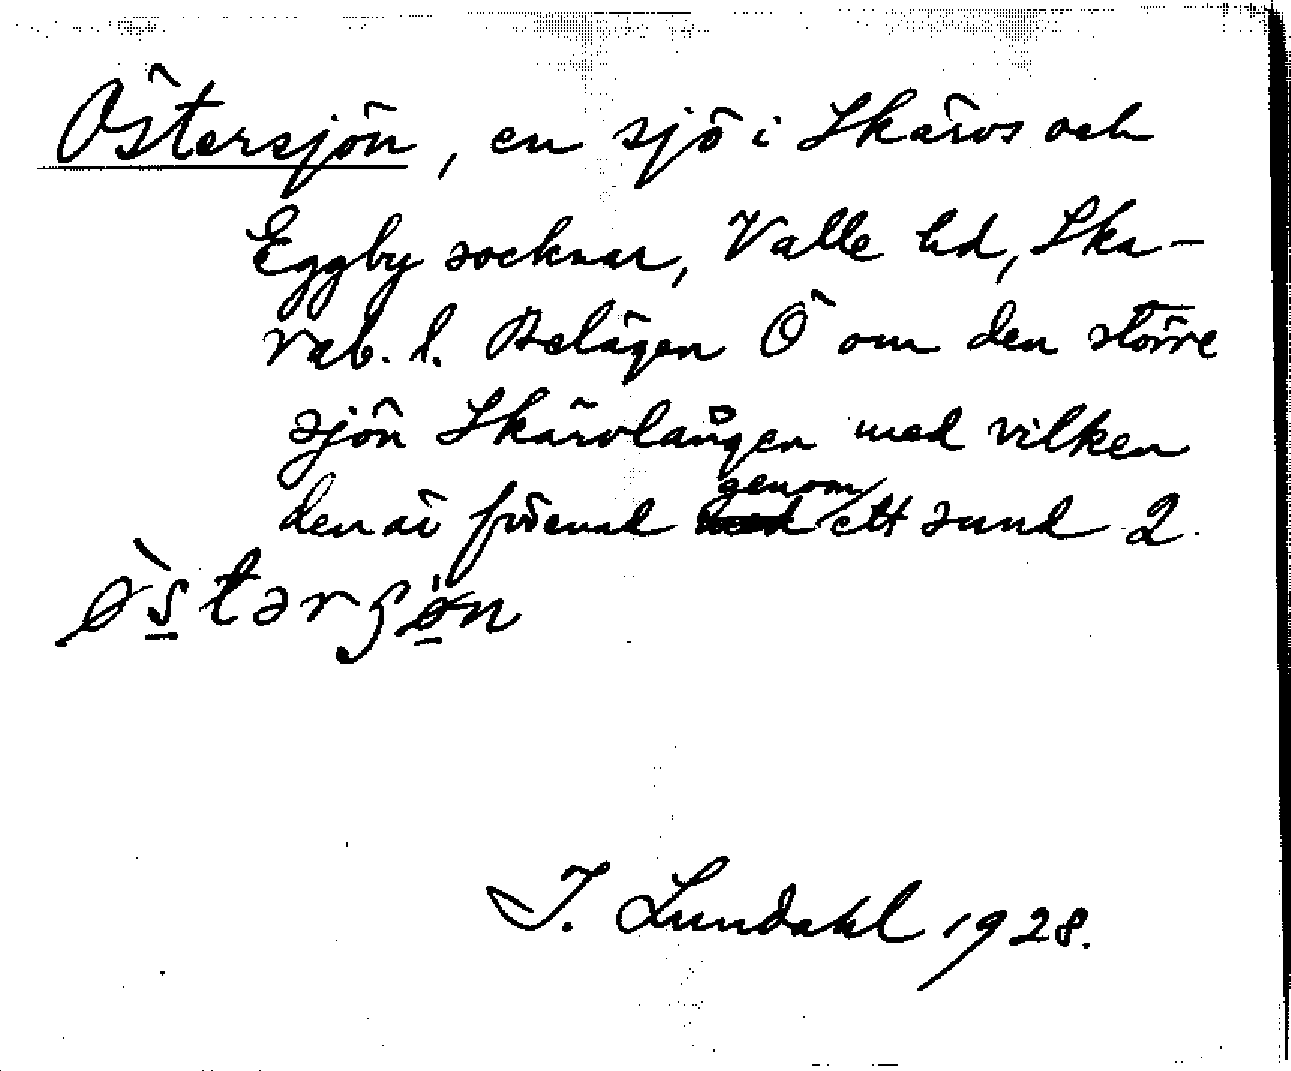 Östersjön, en sjö i Skärvs och
Eggby socknar, Valle hd, Ska-
rab. l. Belägen Ö om den större
sjön Skärvlången med vilken
den är förenad genom ett sund 2.
I. Lundahl 1928.